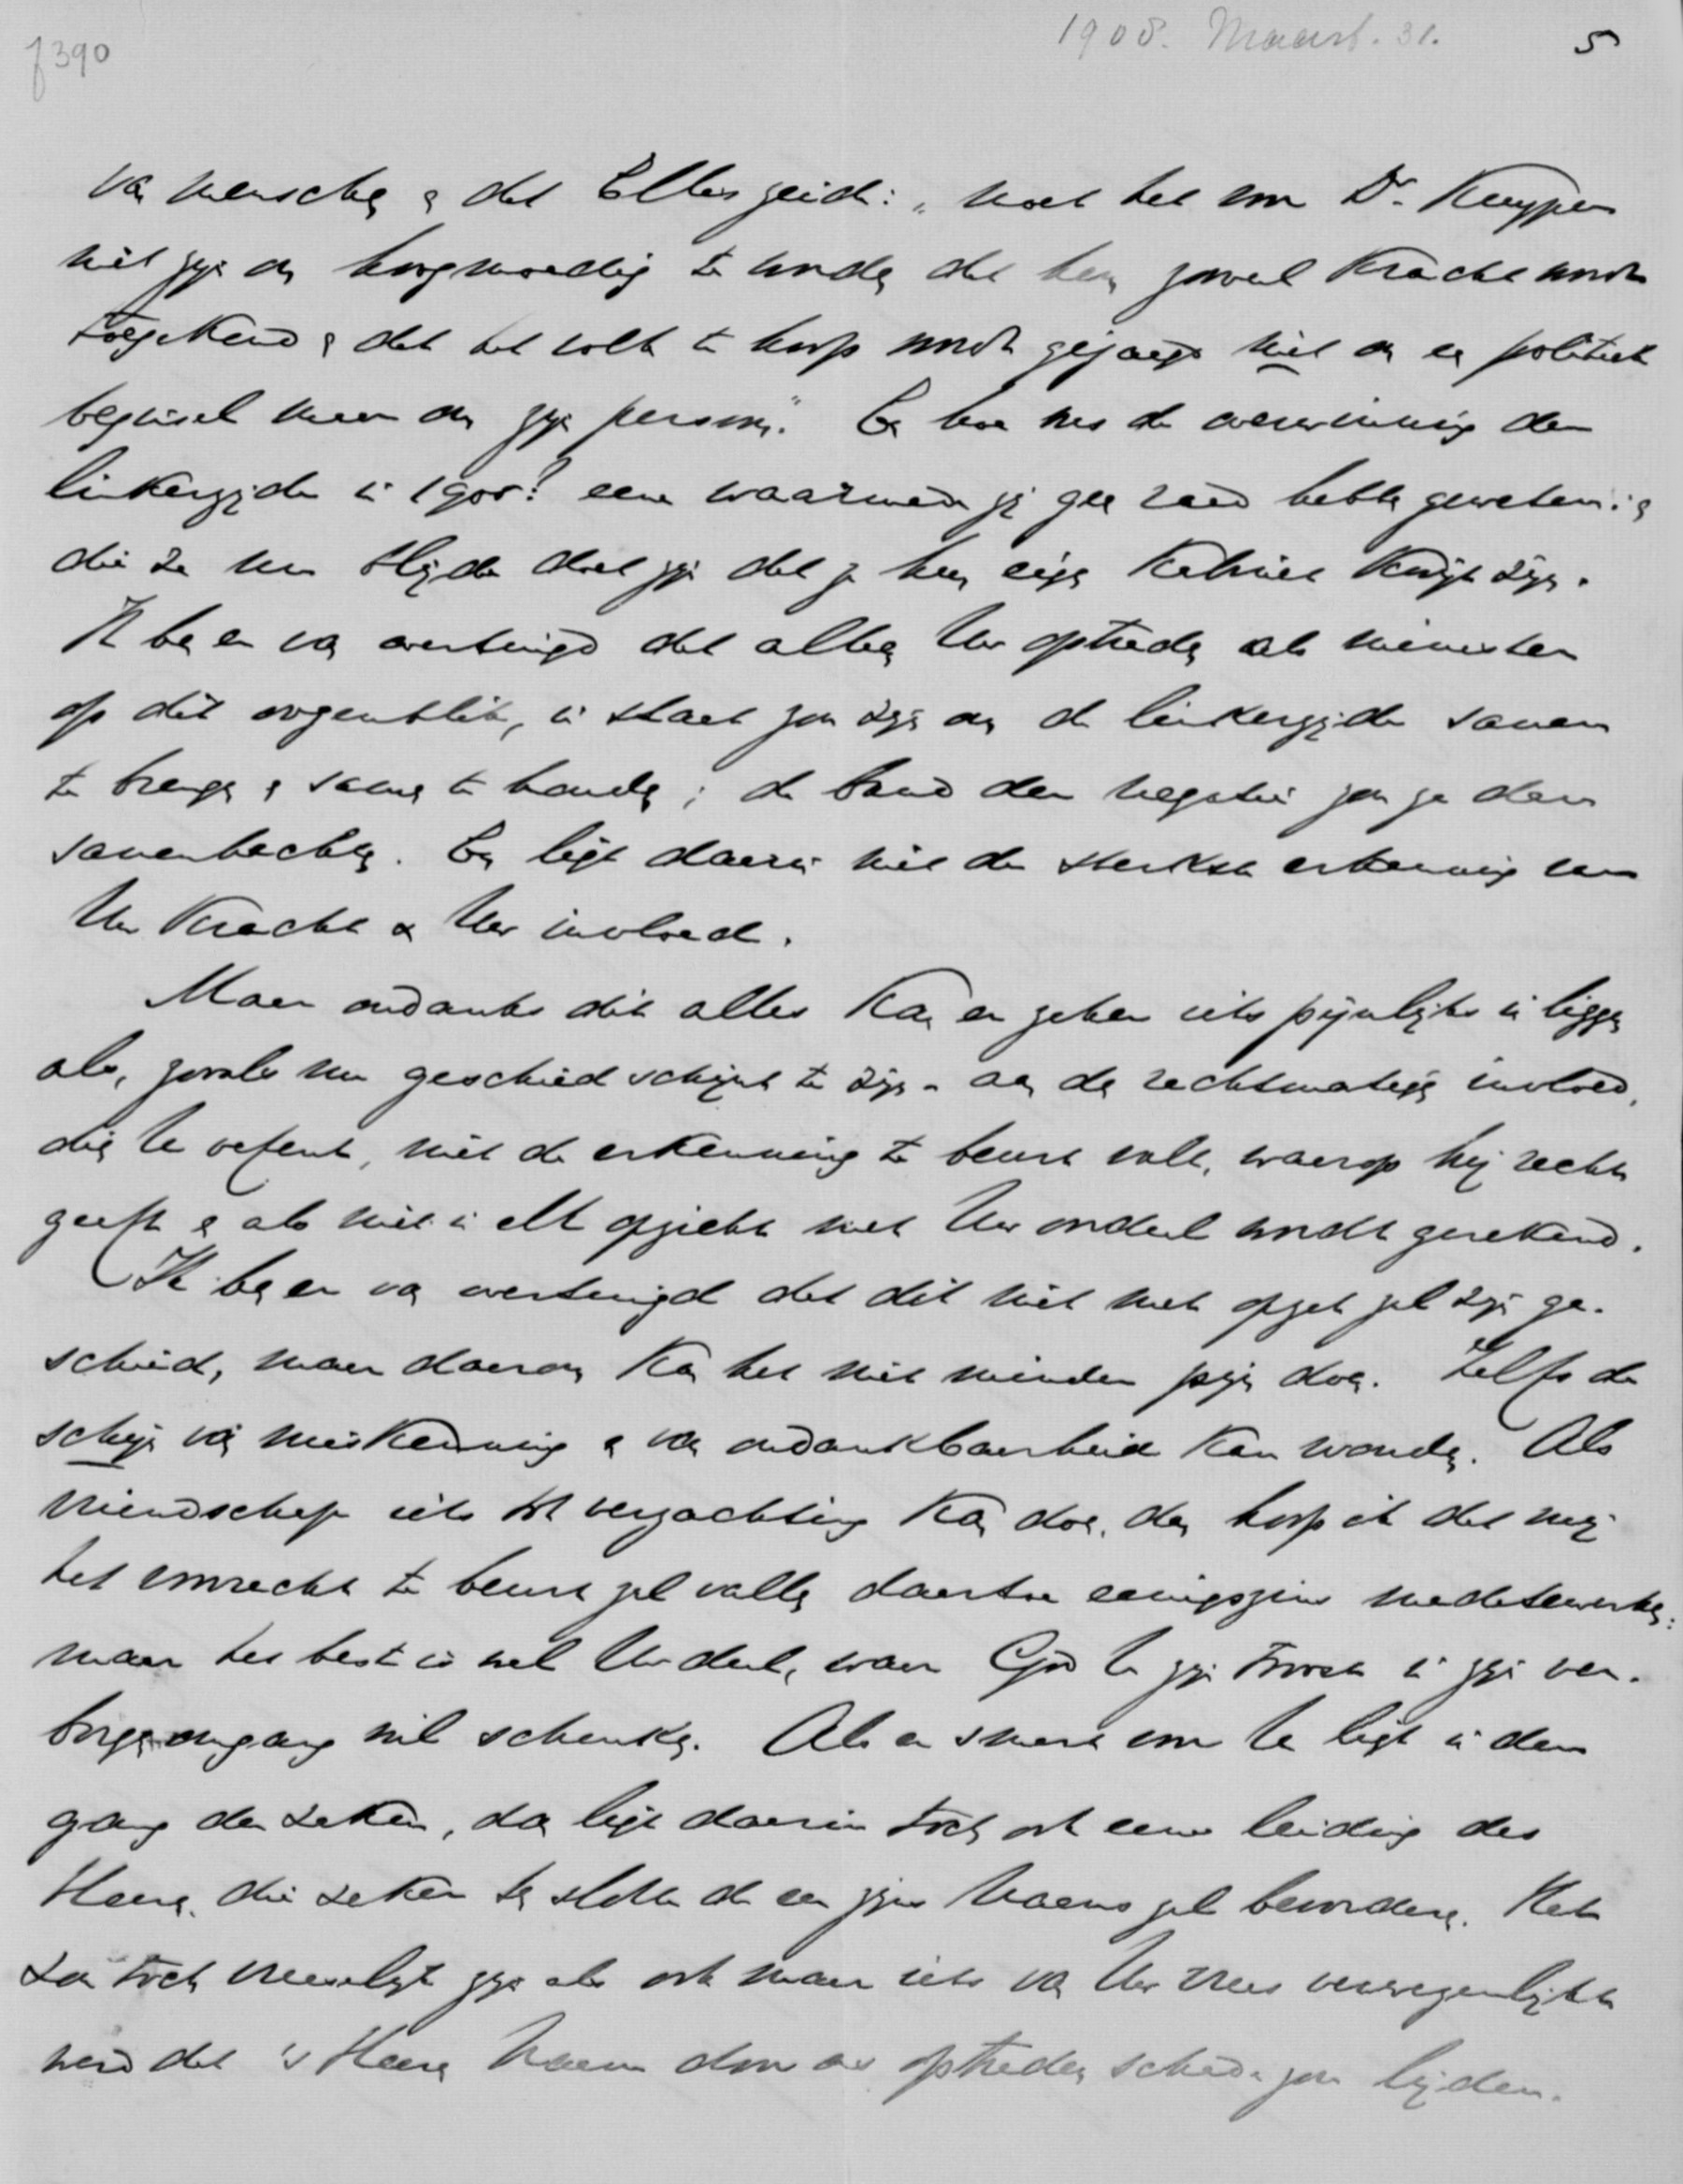 f390
1908. Maart. 31.
5
van menschen en dat Ellis zeide: "moet het voor Dr. Kuyper
niet zijn om hoogmoedig te worden dat hem zoveel kracht wordt
toegekend en dat het volk te hoop wordt gejaagd niet om een politiek
beginsel maar om zijn persoon." En hoe was de overwinning der
linkerzijde in 1905? eene waarmede zij geen raad hebben geweten: en
die ze nu blijde doet zijn dat ze hun eigen Kabinet kwijt zijn.
Ik ben er van overtuigd dat alleen Uw optreden als minister
op dit oogenblik, in staat zou zijn om de linkerzijde samen
te brengen en samen te houden; de band der negatie zou ze dan
samenhechten. En ligt daarin niet de sterkste erkenning van
Uw Kracht & Uw invloed.
Maar ondanks dit alles kan er zeker iets pijnlijks in liggen
als, zooals nu geschied schijnt te zijn - aan den rechtmatigen invloed,
dien U oefent, niet de erkenning te beurt valt, waarop hij recht
geeft en als niet in elk opzicht met Uw oordeel wordt gerekend.
Ik ben er van overtuigd dat dit niet met opzet zal zijn ge-
schied, maar daarom kan het niet minder pijn doen. Zelfs de
schijn van miskenning en van ondankbaarheid kan wonden. Als
vriendschap iets tot verzachting kan doen, dan hoop ik dat mij
het voorrecht te beurt zal vallen daartoe eenigszins mede te werken:
maar het beste is wel Uw deel, waar God U zijn troost in zijn ver-
borgen omgang wil schenken. Als er smart voor U ligt in den
gang der zaken, dan ligt daarin toch ook eene leiding des
Heeren, die zeker ten slotte de eer zijns Naams zal bevorderen. Het
zou toch vreeselijk zijn als ook maar iets van Uw vrees verwezenlijkt
werd dat 's Heeren Naam door ons optreden schade zou lijden.